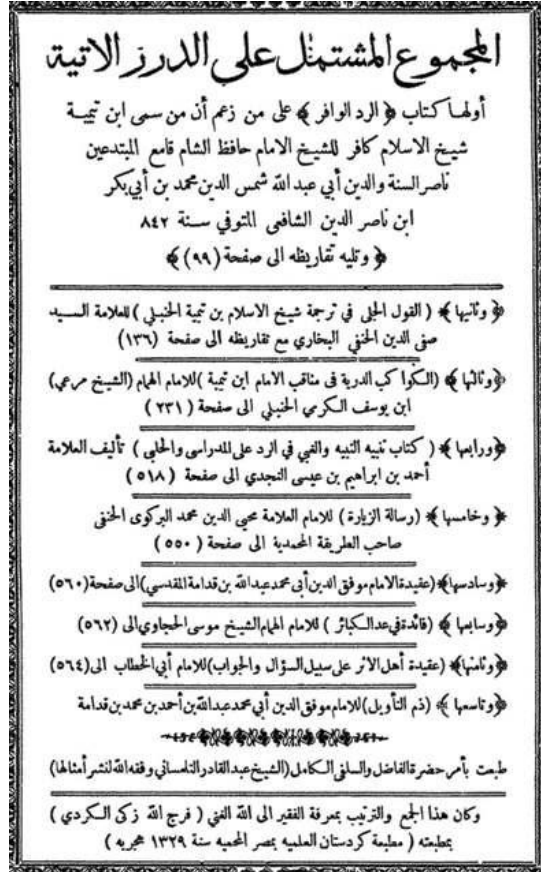 المجموع المشتمل على الدرر الاتية
أولهـا كتاب ﴿ الرد الوافر ﴾ على من زعم أن من سمى ابن تيميـة
شيخ الاسلام كافر للشيخ الامام حافظ الشام قامع المبتدعين
ناصر السنة والدين أبي عبد الله شمس الدين محمد بن أبي بكر
ابن ناصر الدين الشافعى المتوفي سـنة ٨٤٢
﴿ وتليه تقاريظه الى صفحة (٩٩) ﴾
﴿ وثانيها ﴾ ( القول الجلى في ترجمة شيخ الاسلام بن تيمية الحنبـلي ) للعلامة السـيد
صفى الدين الحنفي البخاري مع تقاريظه الى صفحة (١٣٦)
﴿وثالثها﴾ (الكواكب الدرية فى مناقب الامام ابن تيمية )للامام الهمام (الشيخ مرعي)
ابن يوسف الكرمي الحنبلي الى صفحة ( ٢٣١ )
﴿ورابعها﴾ ( كتاب تنبيه النبيه والغبي في الرد على المدراسى والحلبى ) تأليف العلامة
أحمد بن ابراهيم بن عيسى النجدي الى صفحة ( ٥١٨ )
﴿ وخامسها ﴾ (رسالة الزيارة ) للامام العلامة محيي الدين محمد البركوى الحنفى
صاحب الطريقة المحمدية الى صفحة ( ٥٥٠ )
﴿وسادسها﴾(عقيدة الامام موفق الدين أبى محمد عبد الله بن قدامة المقدسي)الى صفحة(٥٦٠)
﴿وسابعها﴾ (فائدة في عد الكبائر ) للامام الهمام الشيخ موسى الحجاوي الى (٥٦٢)
﴿وثامنها﴾ (عقيدة أهل الاثر على سبيل السؤال والجواب)للامام أبي الخطاب الى(٥٦٤)
﴿وتاسعها﴾ (ذم التأويل)للامام موفق الدين أبي محمد عبد الله بن أحمد بن محمد بن قدامة
طبعت بأمر حضرة الفاضل والسلفى الكامل (الشيخ عبد القادر التلمساني وفقه الله لنشر أمثالها)
وكان هذا الجمع والترتيب بمعرفة الفقير الى الله الغني ( فرج الله زكى الكردي )
بمطبعته ( مطبعة كردستان العلميه بمصر المحميه سنة ١٣٢٩ هجريه )